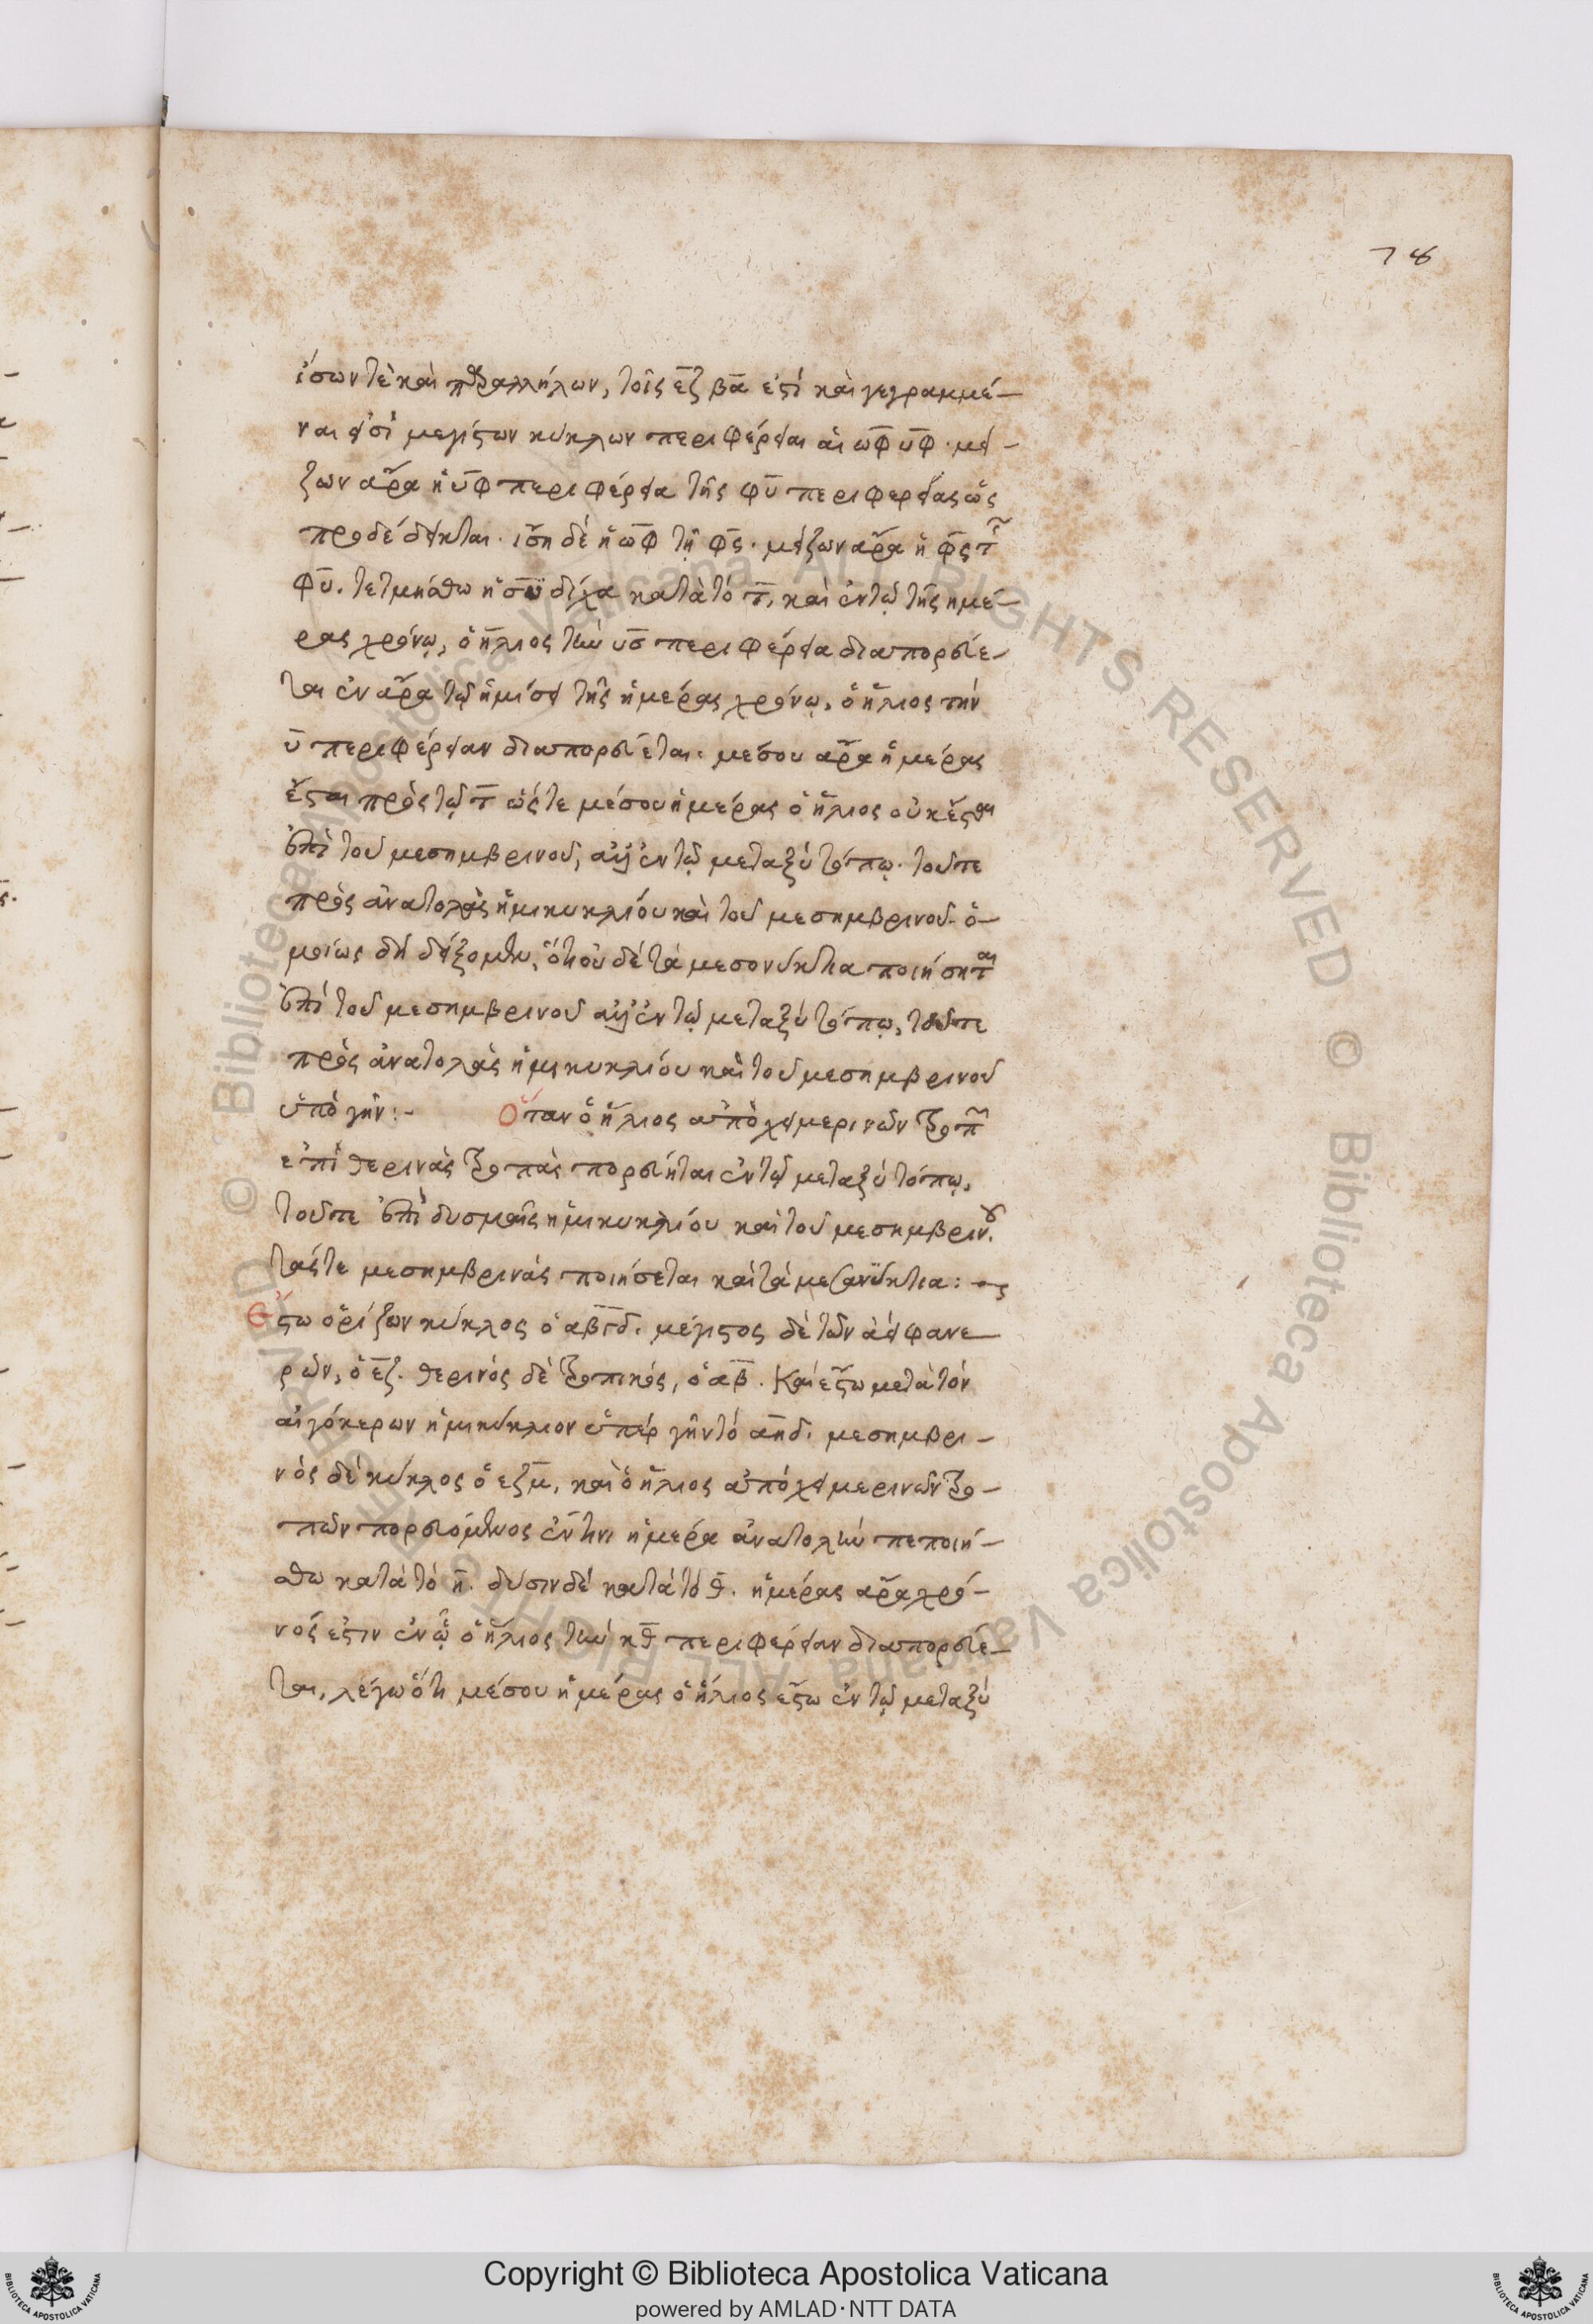 78
ἴσων τὲ καὶ παραλλήλων, τοῖς εζ βα ἐστί καὶ γεγραμμέ-
ναι εἰσὶ μεγίστων κύκλων περιφέρειαι αἱ ωφ υφ. μεί-
ζων ἄρα ἡ υφ περιφέρεια τῆς φυ περιφερείας ὡς
προδέδεικται. ἴση δὲ ἡ ωφ τῇ φς. μείζων ἄρα ἡ φς τῆς
φυ. τετμήσθω ἡ συ δίχα κατὰ τὸ τ, καὶ ἐν τῷ τῆς ημέ-
ρας χρόνῳ, ὁ ἥλιος τὴν υσ περιφέρεια διαπορεύε-
ται ἐν ἄρα τῷ ἡμίσει τῆς ἡμέρας χρόνῳ, ὁ ἥλιος τὴν
υ περιφέρειαν διαπορεύεται. μέσου ἄρα ἡμέρας
ἔσται πρὸς τῷ τ ὥστε μέσου ἡμέρας ὁ ἥλιος οὐκ ἔσται
ἐπὶ τοῦ μεσημβρινοῦ, ἀλλ' ἐν τῷ μεταξύ τόπῳ. τοῦ τε
πρὸς ἀνατολὰς ἡμικυκλίου καὶ τοῦ μεσημβρινοῦ. ὁ-
μοίως δὴ δείξομεν, ὅτι οὐδὲ τὰ μεσονύκτια ποιήσηται
ἐπὶ τοῦ μεσημβρινοῦ ἀλλ' ἐν τῷ μεταξύ τόπῳ, τοῦ τε
πρὸς ἀνατολὰς ἡμικυκλίου καὶ τοῦ μεσημβρινοῦ
ὑπὸ γῆν:- Ὅταν ὁ ἥλιος ἀπὸ χειμερινῶν τροπῶν
ἐπὶ θερινὰς τροπὰς πορεύηται ἐν τῷ μεταξύ τόπῳ,
τοῦ τε ἐπὶ δυσμαῖς ἡμικυκλίου καὶ τοῦ μεσημβρινοῦ.
τάς τε μεσημβρινὰς ποιήσεται καὶ τὰ μεσονύκτια:
Ἔστω ὁρίζων κύκλος ὁ αβγδ. μέγιστος δὲ τῶν ἀεὶ φανε
ρῶν, ὁ εζ. θερινός δὲ τροπικός, ὁ αβ. Καὶ ἔστω μετὰ τὸν
αἰγόκερων ἡμικύκλιον ὑπὲρ γῆν τὸ αηδ. μεσημβρι-
νὸς δὲ κύκλος ὁ εζμ, καὶ ὁ ἥλιος ἀπὸ χειμερινῶν τρο-
πῶν πορευόμενος ἔν τινι ἡμέρα ἀνατολὴν πεποιή-
σθω κατὰ τὸ η. δύσιν δὲ κατὰ τὸ θ. ἡμέρας ἄρα χρό-
νός ἐστιν ἐν ᾧ ὁ ἥλιος τὴν κθ περιφέρειαν διαπορεύε-
ται, λέγω ὅτι μέσου ἡμέρας ὁ ἥλιος ἔστω ἐν τῷ μεταξύ
Copyright © Biblioteca Apostolica Vaticana
powered by AMLAD·NTT DATA